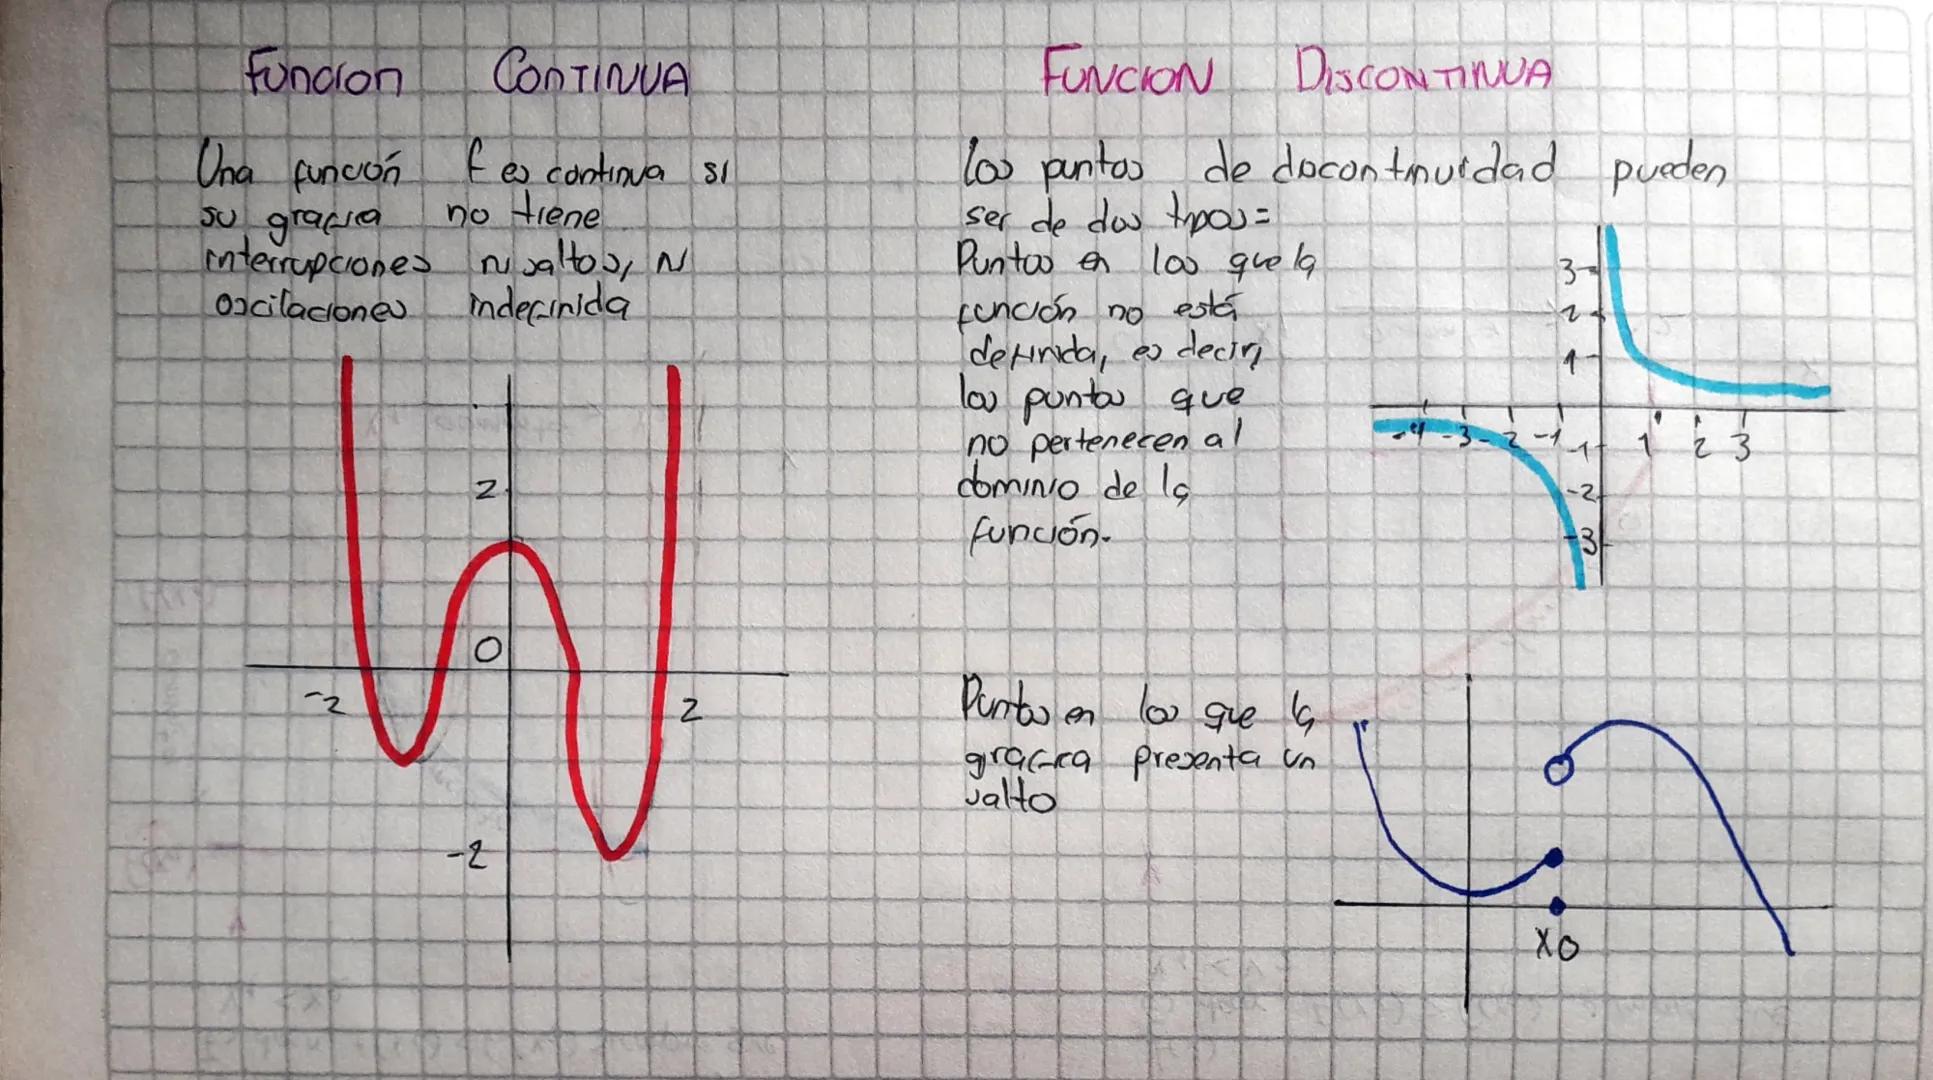 Funcion Continua
Una función f es continua si
su grafica no tiene
interrupciones ni saltos, Ni
oscilaciones indefinida
2
0
-2
2
-2
FUNCION DISCONTINUA
los puntos de discontinuidad pueden
ser de dos tipos=
Puntos en los que la
función no está
definida, es decir,
los puntos que
no pertenecen al
dominio de la
función.
3
2
1
-4 -3 -2 -1 1 2 3
-1
-2
-3
Puntos en los que la
grafica presenta un
salto
x0